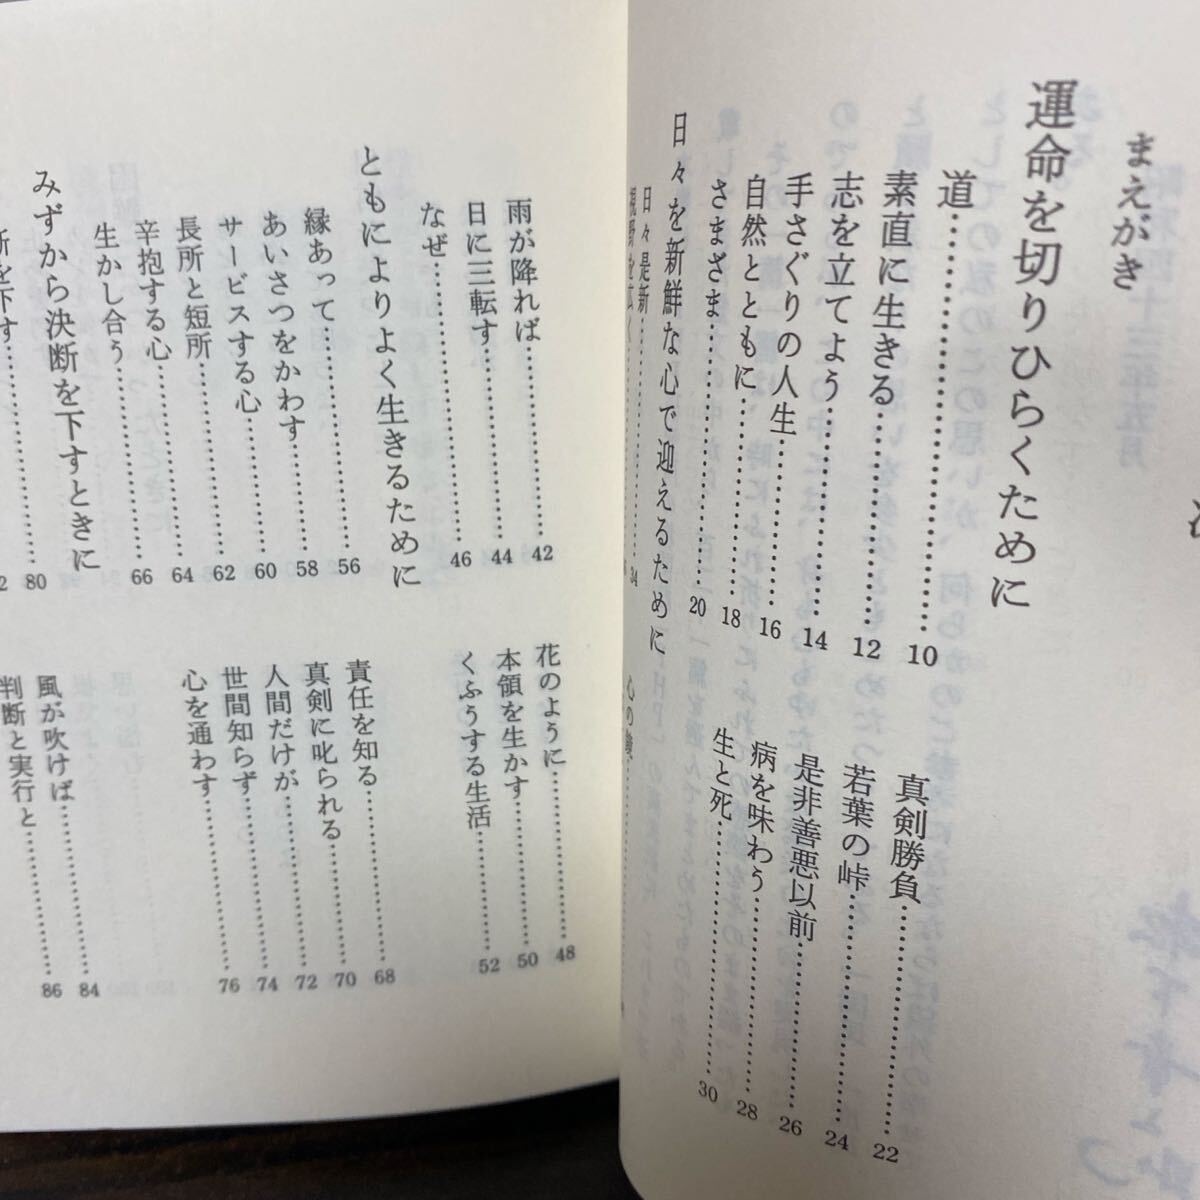 まえがき
運命を切りひらくために
道……………………10
素直に生きる……………………12
志を立てよう……………………14
手さぐりの人生……………………16
自然とともに……………………18
さまざま……………………20
真剣勝負……………………22
若葉の峠……………………24
是非善悪以前……………………26
病を味わう……………………28
生と死……………………30
日々を新鮮な心で迎えるために
日々是新……………………34
視野を広く
心の鏡
雨が降れば……………………42
日に三転す……………………44
なぜ……………………46
花のように……………………48
本領を生かす……………………50
くふうする生活……………………52
ともによりよく生きるために
縁あって……………………56
あいさつをかわす……………………58
サービスする心……………………60
長所と短所……………………62
辛抱する心……………………64
生かし合う……………………66
責任を知る……………………68
真剣に叱られる……………………70
人間だけが……………………72
世間知らず……………………74
心を通わす……………………76
みずから決断を下すときに
断を下す……………………80
風が吹けば……………………84
判断と実行と……………………86